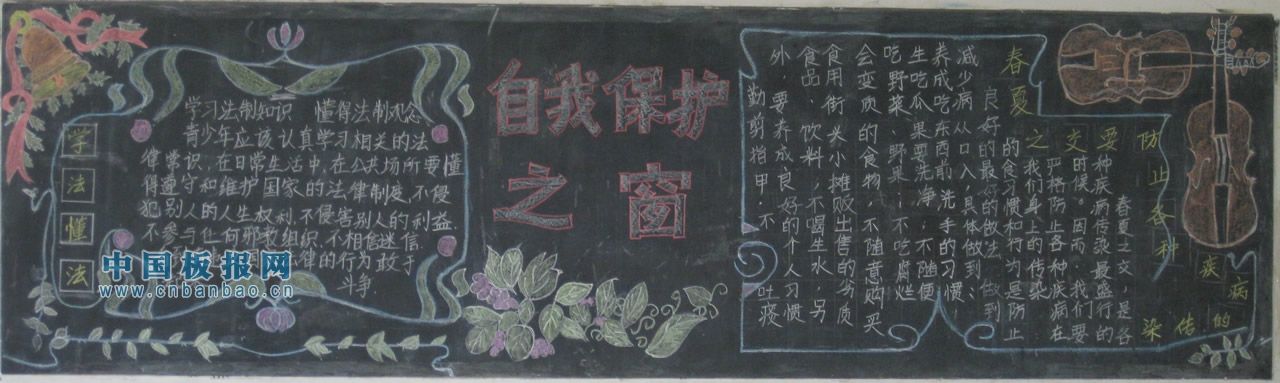 学法懂法
学习法制知识 懂得法制观念
青少年应该认真学习相关的法
律常识,在日常生活中,在公共场所要懂
得遵守和维护国家的法律制度,不侵
犯别人的人生权利,不侵害别人的利益
不参与任何邪教组织,不相信迷信
律的行为敢于
斗争
中国板报网
www.cnbanbao.cn
自我保护
之窗
春夏之交要防止各种疾病的传染
春夏之交,是各
种疾病传染最盛行的
时候。因而,我们要
严格防止各种疾病在
我们身上的传染
的食习惯和行为是防止
良好的最好的做法,做到
减少病从口入,具体做到:
养成吃东西前洗手的习惯,
生吃瓜果要洗净,不随便
吃野菜、野果,不吃腐烂
会变质的食物,不随意购买
食用街头小摊贩出售的劣质
食品、饮料,不喝生水,另
外,要养成良好的个人习惯
勤剪指甲,不吐痰